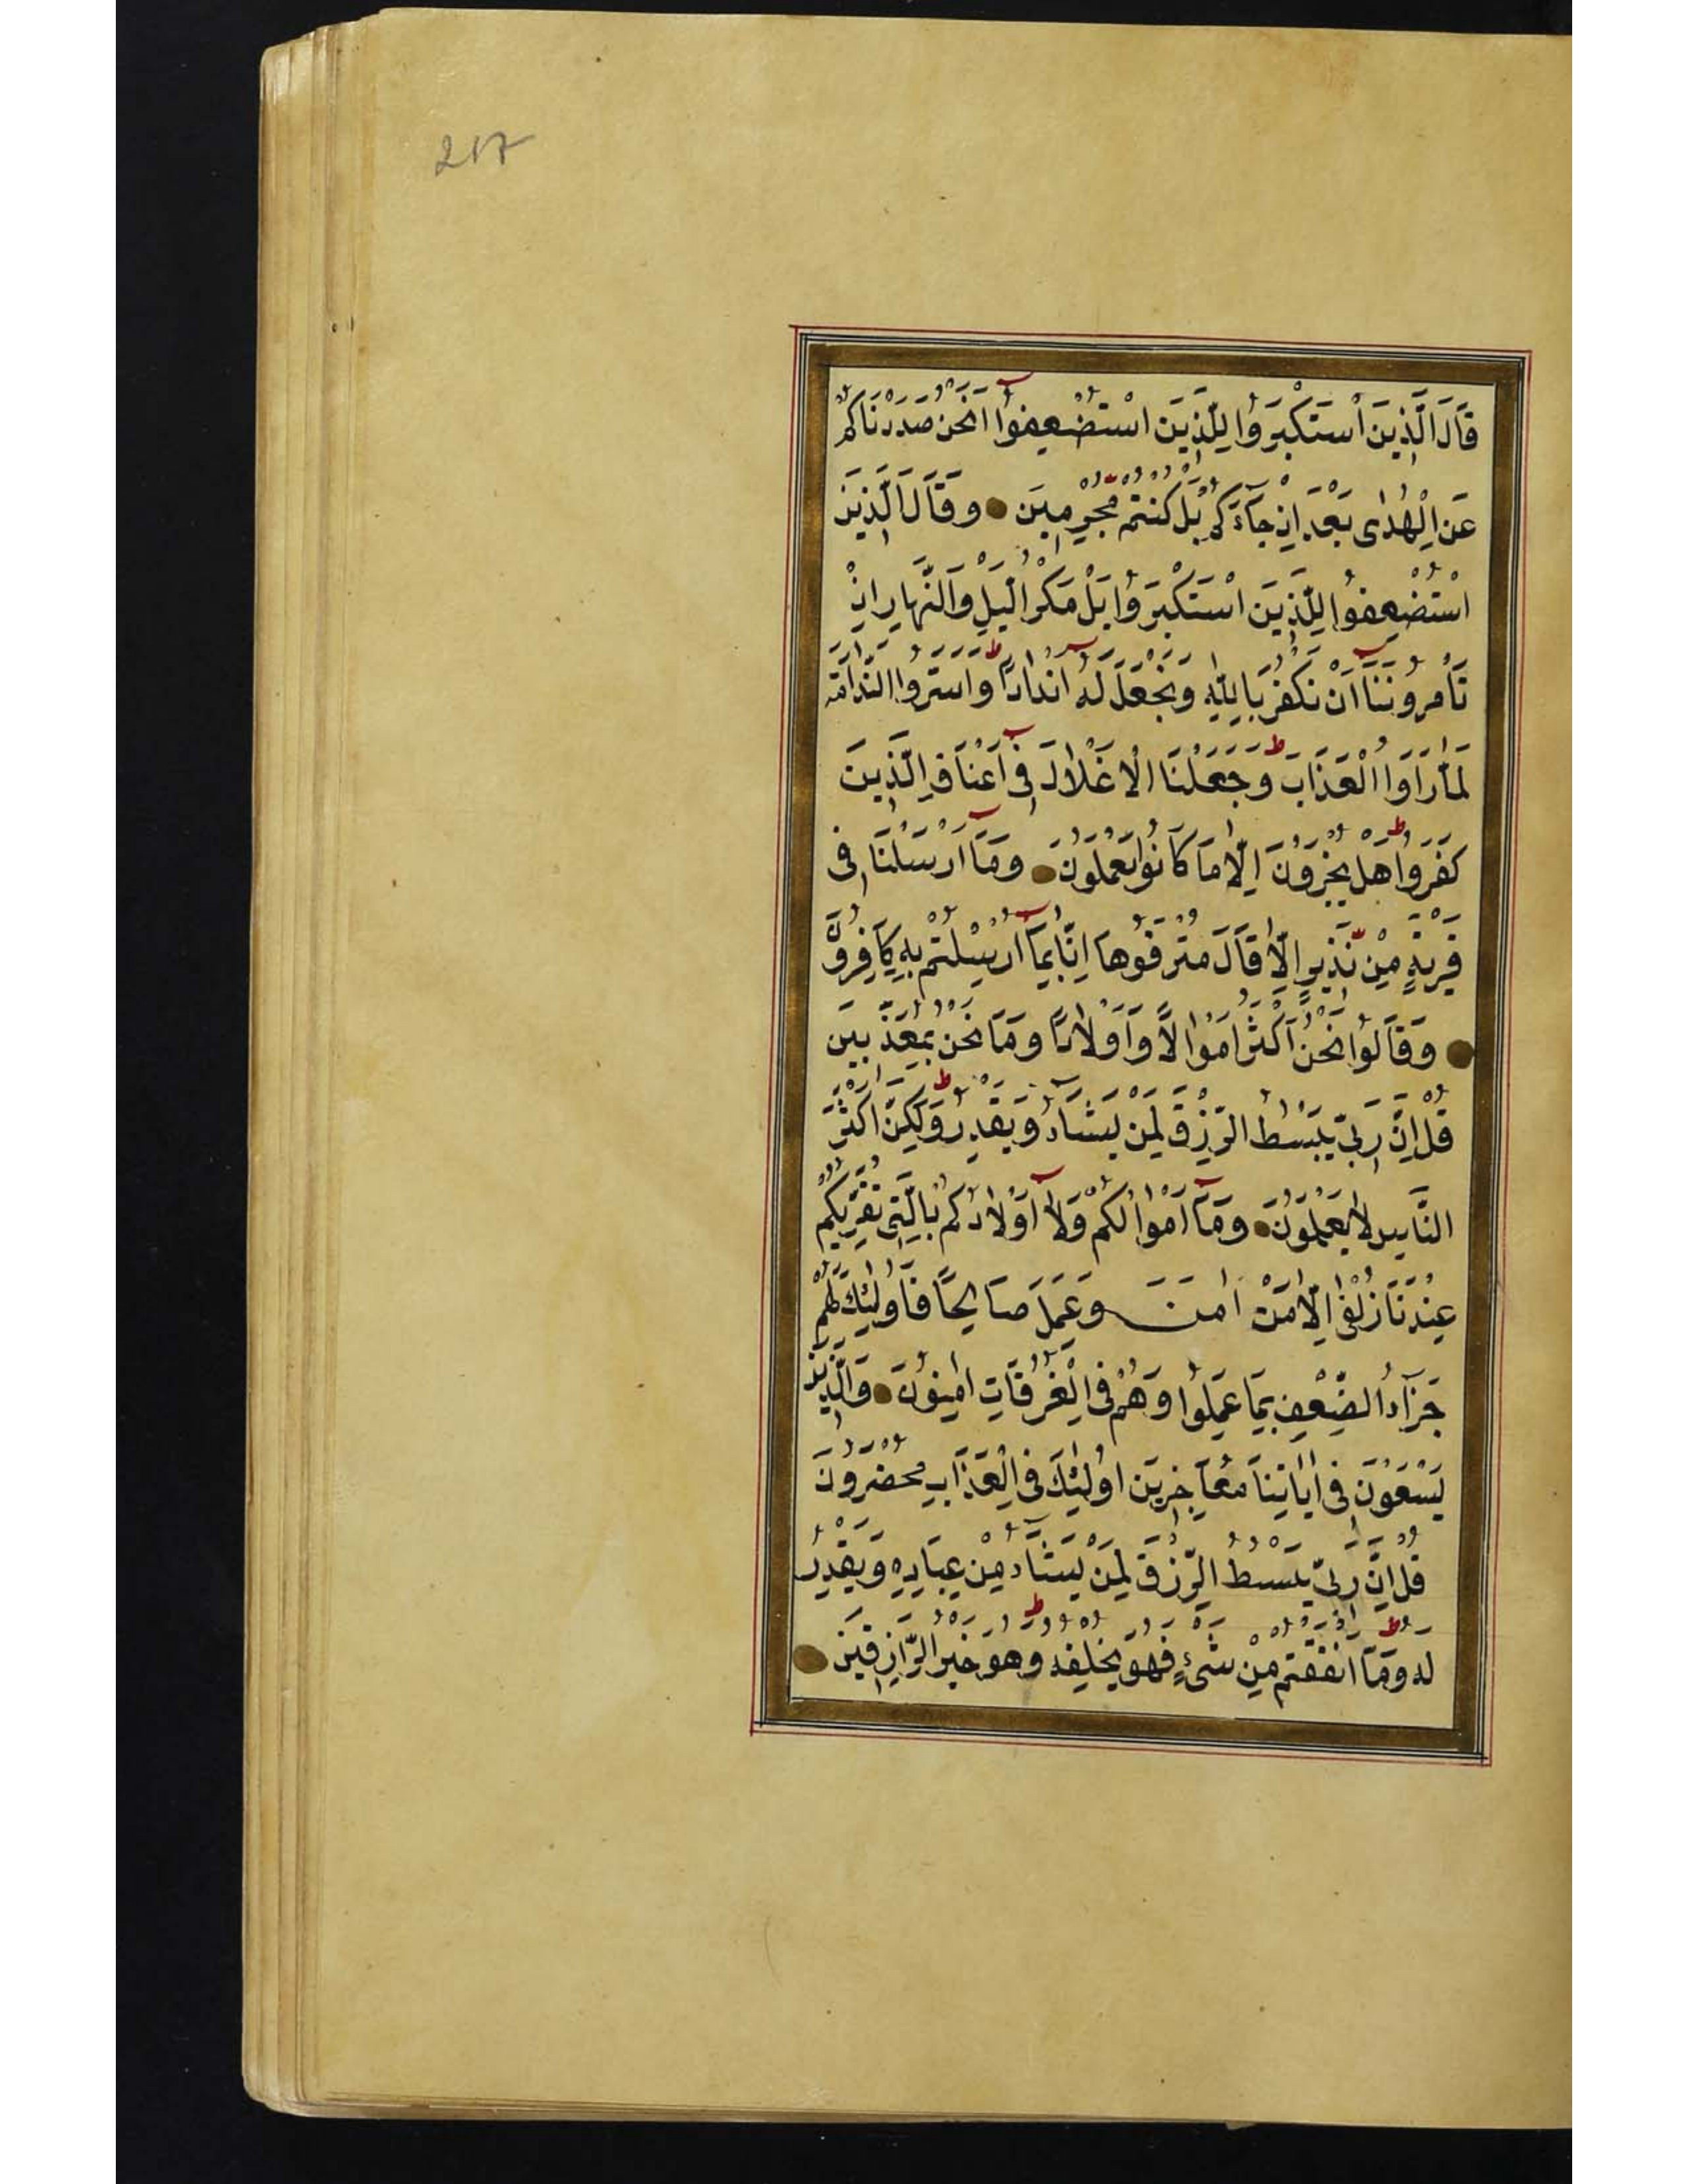 217
قَالَ الَّذِينَ اسْتَكْبَرُوا لِلَّذِينَ اسْتُضْعِفُوا اَنَحْنُ صَدَدْنَاكُمْ
عَنِ الْهُدٰى بَعْدَ اِذْ جَآءَكُمْ بَلْ كُنْتُمْ مُجْرِمِينَ ● وَقَالَ الَّذِينَ
اسْتُضْعِفُوا لِلَّذِينَ اسْتَكْبَرُوا بَلْ مَكْرُ الَّيْلِ وَالنَّهَارِ اِذْ
تَأْمُرُونَنَآ اَنْ نَكْفُرَ بِاللّٰهِ وَنَجْعَلَ لَهُ اَنْدَادًا ط وَاَسَرُّوا النَّدَامَةَ
لَمَّا رَاَوُا الْعَذَابَ ط وَجَعَلْنَا الْاَغْلَالَ فِى اَعْنَاقِ الَّذِينَ
كَفَرُوا ط هَلْ يُجْزَوْنَ اِلَّا مَا كَانُوا يَعْمَلُونَ ● وَمَآ اَرْسَلْنَا فِى
قَرْيَةٍ مِنْ نَذِيرٍ اِلَّا قَالَ مُتْرَفُوهَا اِنَّا بِمَآ اُرْسِلْتُمْ بِهِ كَافِرُونَ
● وَقَالُوا نَحْنُ اَكْثَرُ اَمْوَالًا وَاَوْلَادًا وَمَا نَحْنُ بِمُعَذَّبِينَ
قُلْ اِنَّ رَبِّى يَبْسُطُ الرِّزْقَ لِمَنْ يَشَآءُ وَيَقْدِرُ ط وَلٰكِنَّ اَكْثَرَ
النَّاسِ لَا يَعْلَمُونَ ● وَمَآ اَمْوَالُكُمْ وَلَآ اَوْلَادُكُمْ بِالَّتِى تُقَرِّبُكُمْ
عِنْدَنَا زُلْفٰى اِلَّا مَنْ اٰمَنَ وَعَمِلَ صَالِحًا فَاُولٰئِكَ لَهُمْ
جَزَآءُ الضِّعْفِ بِمَا عَمِلُوا وَهُمْ فِى الْغُرُفَاتِ اٰمِنُونَ ● وَالَّذِينَ
يَسْعَوْنَ فِى اٰيَاتِنَا مُعَاجِزِينَ اُولٰئِكَ فِى الْعَذَابِ مُحْضَرُونَ
قُلْ اِنَّ رَبِّى يَبْسُطُ الرِّزْقَ لِمَنْ يَشَآءُ مِنْ عِبَادِهِ وَيَقْدِرُ
لَهُ ط وَمَآ اَنْفَقْتُمْ مِنْ شَىْءٍ فَهُوَ يُخْلِفُهُ ط وَهُوَ خَيْرُ الرَّازِقِينَ ●